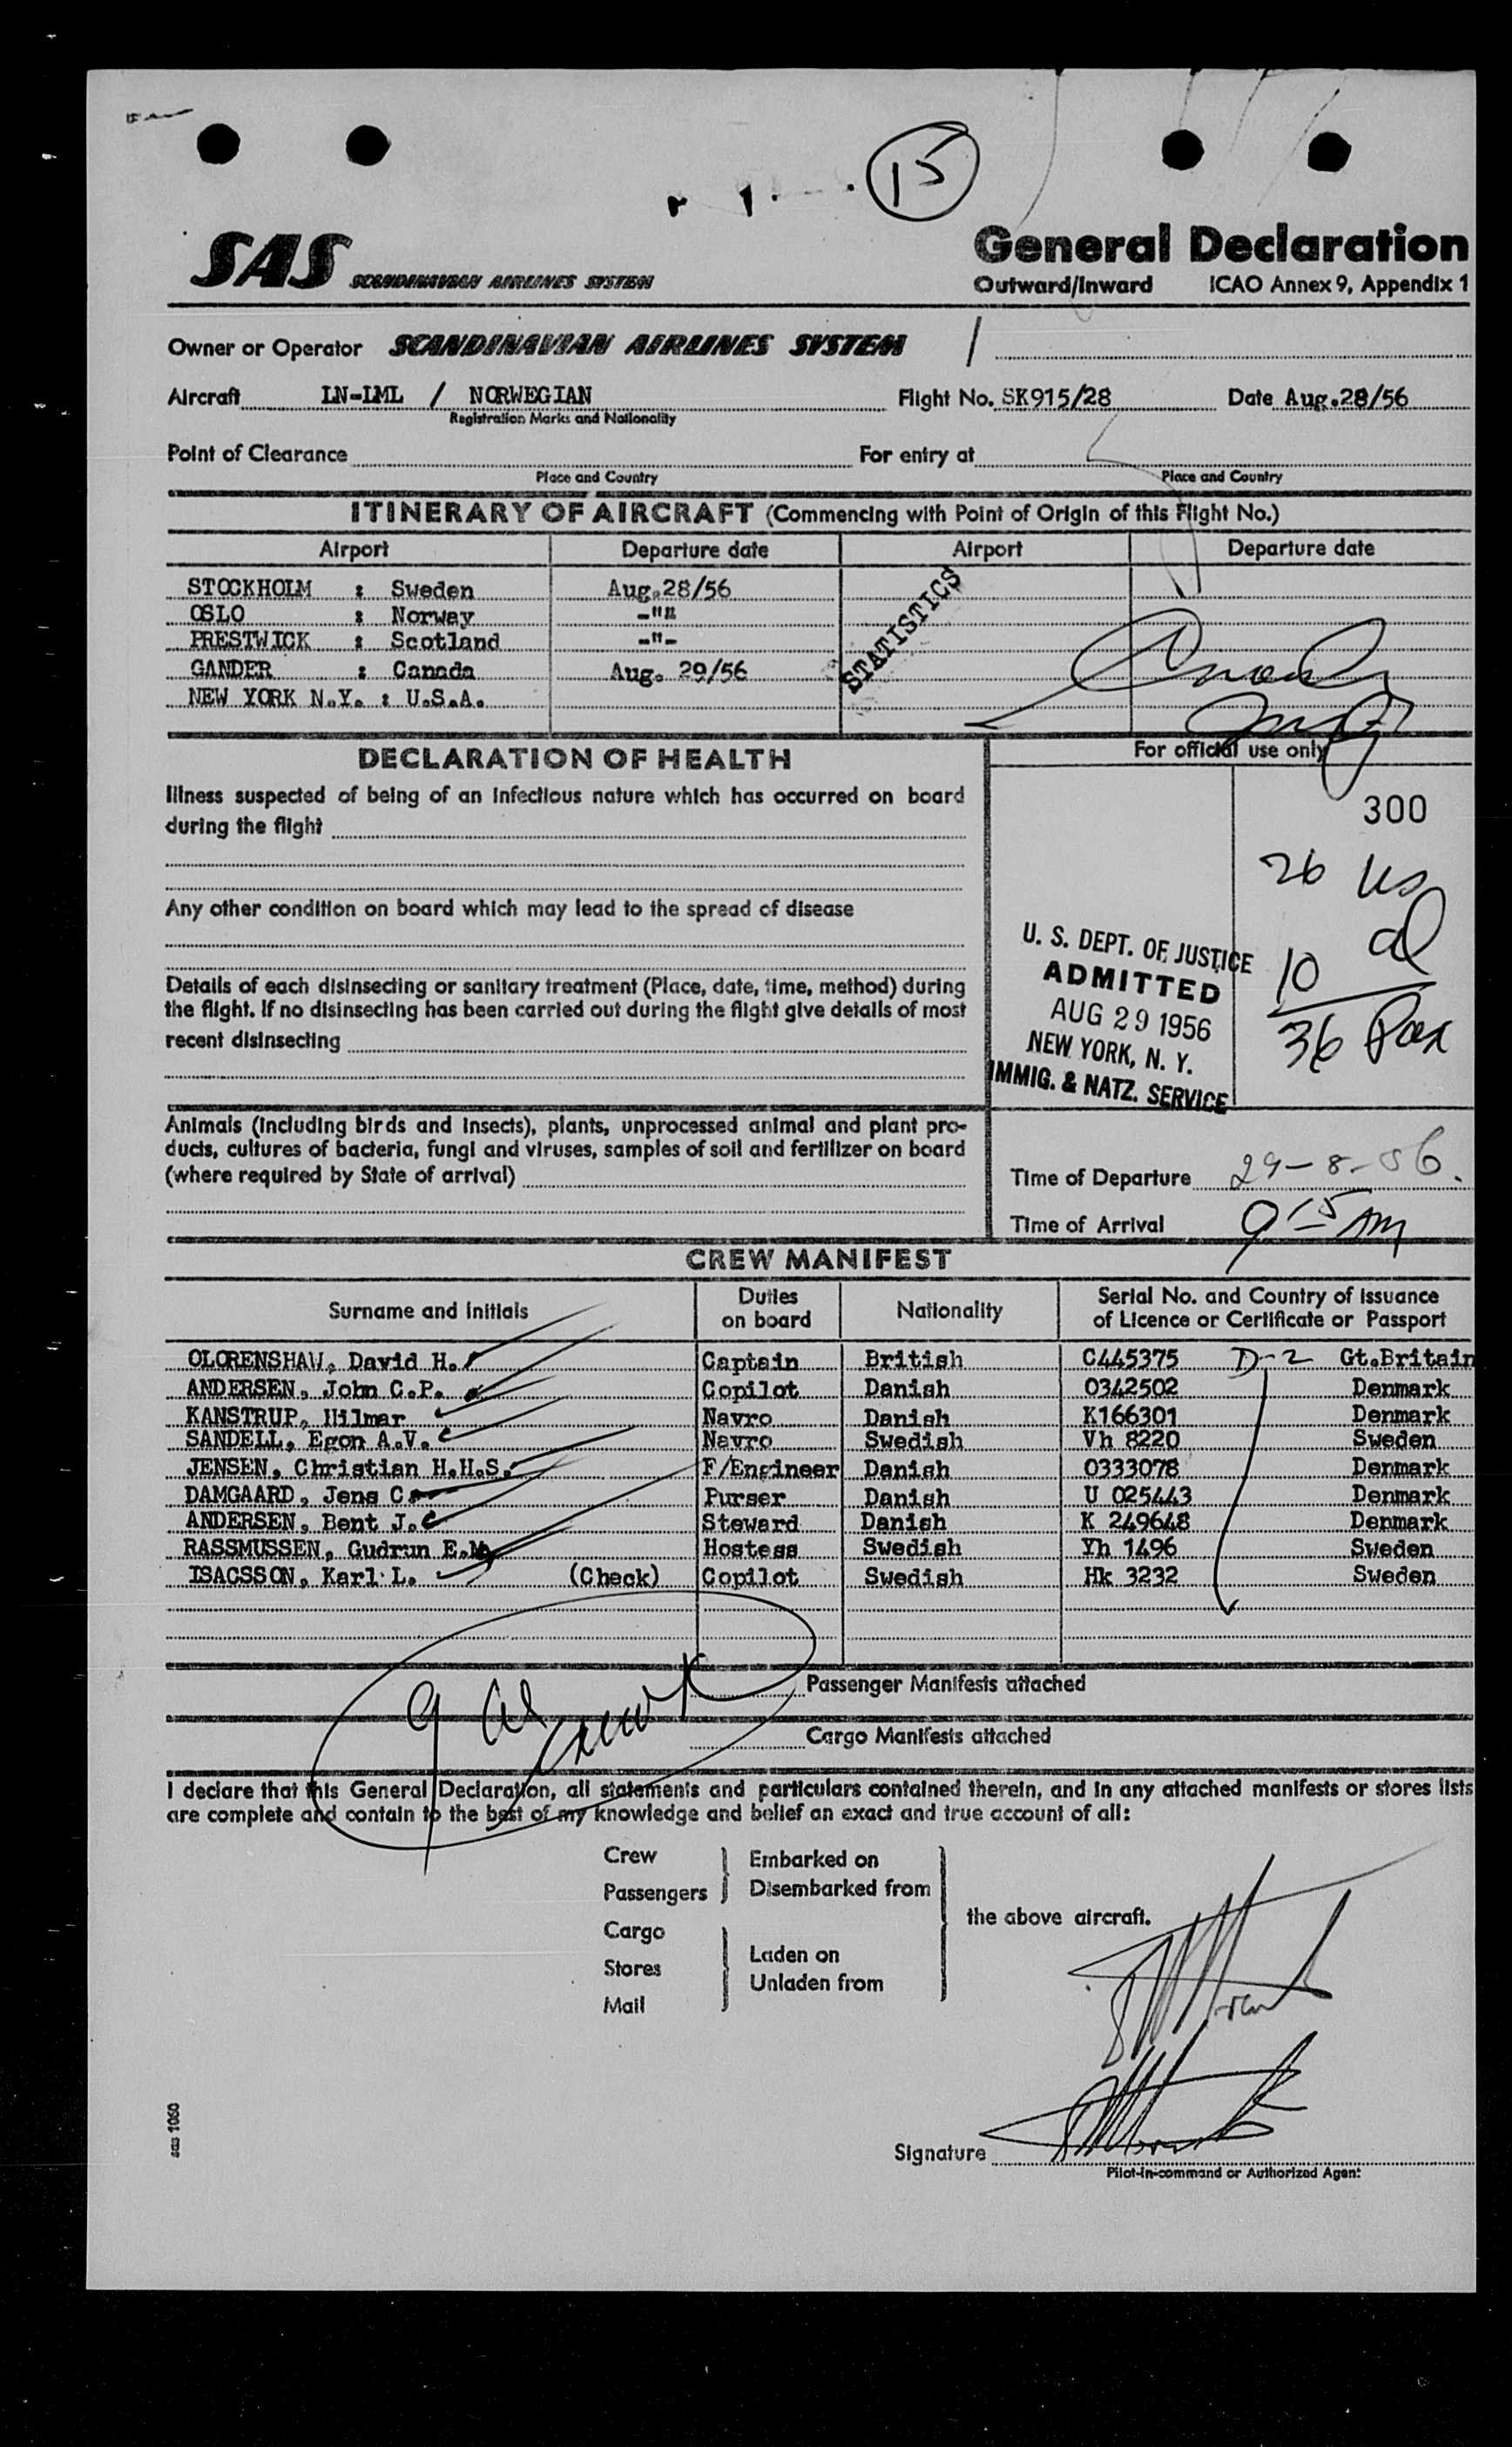 15
SAS SCANDINAVIAN AIRLINES SYSTEM
General Declaration
Outward/Inward ICAO Annex 9, Appendix 1
Owner or Operator SCANDINAVIAN AIRLINES SYSTEM
Aircraft LN-LML / NORWEGIAN Flight No. SK915/28 Date Aug.28/56
Registration Marks and Nationality
Point of Clearance For entry at
Place and Country Place and Country
ITINERARY OF AIRCRAFT (Commencing with Point of Origin of this Flight No.)
Airport Departure date Airport Departure date
STOCKHOLM : Sweden Aug.28/56
OSLO : Norway -""
PRESTWICK : Scotland -"-
GANDER : Canada Aug. 29/56
NEW YORK N.Y. : U.S.A.
STATISTICS
DECLARATION OF HEALTH
Illness suspected of being of an infectious nature which has occurred on board
during the flight
Any other condition on board which may lead to the spread of disease
Details of each disinsecting or sanitary treatment (Place, date, time, method) during
the flight. If no disinsecting has been carried out during the flight give details of most
recent disinsecting
Animals (including birds and insects), plants, unprocessed animal and plant pro-
ducts, cultures of bacteria, fungi and viruses, samples of soil and fertilizer on board
(where required by State of arrival)
For official use only
300
26 us
10 al
36 Pax
U. S. DEPT. OF JUSTICE
ADMITTED
AUG 29 1956
NEW YORK, N. Y.
IMMIG. & NATZ. SERVICE
Time of Departure 29-8-56.
Time of Arrival 9 15 AM
CREW MANIFEST
Surname and initials Duties on board Nationality Serial No. and Country of issuance of Licence or Certificate or Passport
OLORENSHAW, David H. Captain British C445375 D-2 Gt.Britain
ANDERSEN, John C.P. Copilot Danish 0342502 Denmark
KANSTRUP, Hilmar Navro Danish K166301 Denmark
SANDELL, Egon A.V. Navro Swedish Vh 8220 Sweden
JENSEN, Christian H.H.S. F/Engineer Danish 0333078 Denmark
DAMGAARD, Jens C. Purser Danish U 025443 Denmark
ANDERSEN, Bent J. Steward Danish K 249648 Denmark
RASSMUSSEN, Gudrun E.M. Hostess Swedish Yh 1496 Sweden
ISACSSON, Karl L. (Check) Copilot Swedish Hk 3232 Sweden
9 al crew
Passenger Manifests attached
Cargo Manifests attached
I declare that this General Declaration, all statements and particulars contained therein, and in any attached manifests or stores lists
are complete and contain to the best of my knowledge and belief an exact and true account of all:
Crew
Passengers
Embarked on
Disembarked from
Cargo
Stores
Mail
Laden on
Unladen from
the above aircraft.
Signature
Pilot-in-command or Authorized Agent
sas 1060